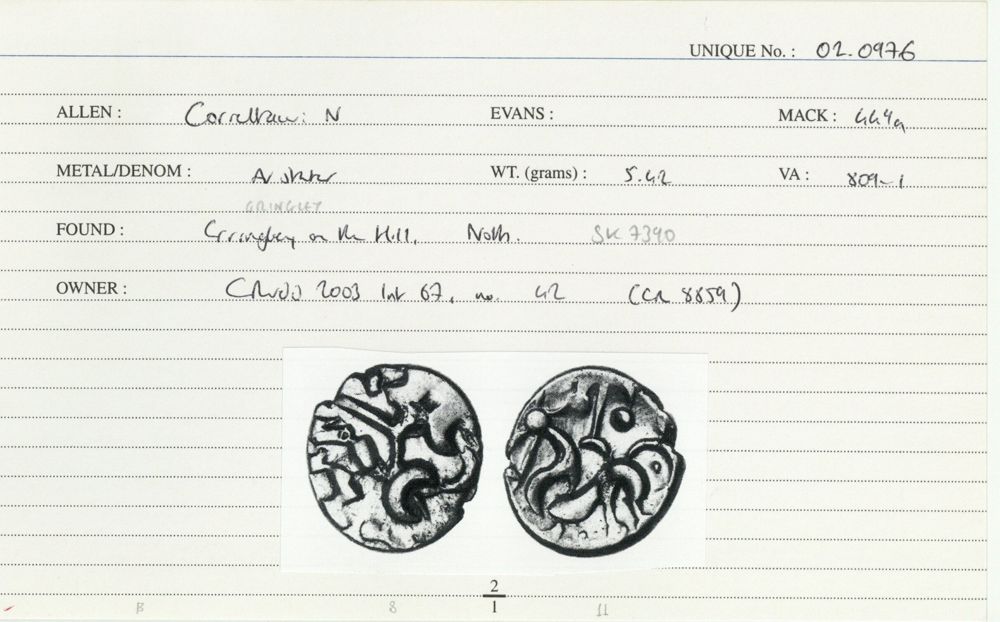 UNIQUE No. : 02.0976
ALLEN : Corieltauvi N EVANS : MACK : 449a
METAL/DENOM : AV stater WT. (grams) : 5.42 VA : 809-1
GRINGLEY
FOUND : Gringley on the Hill, Notts. SK 7390
OWNER : 2003 67, no. 42 (CR 8859)
2
1
B 8 11